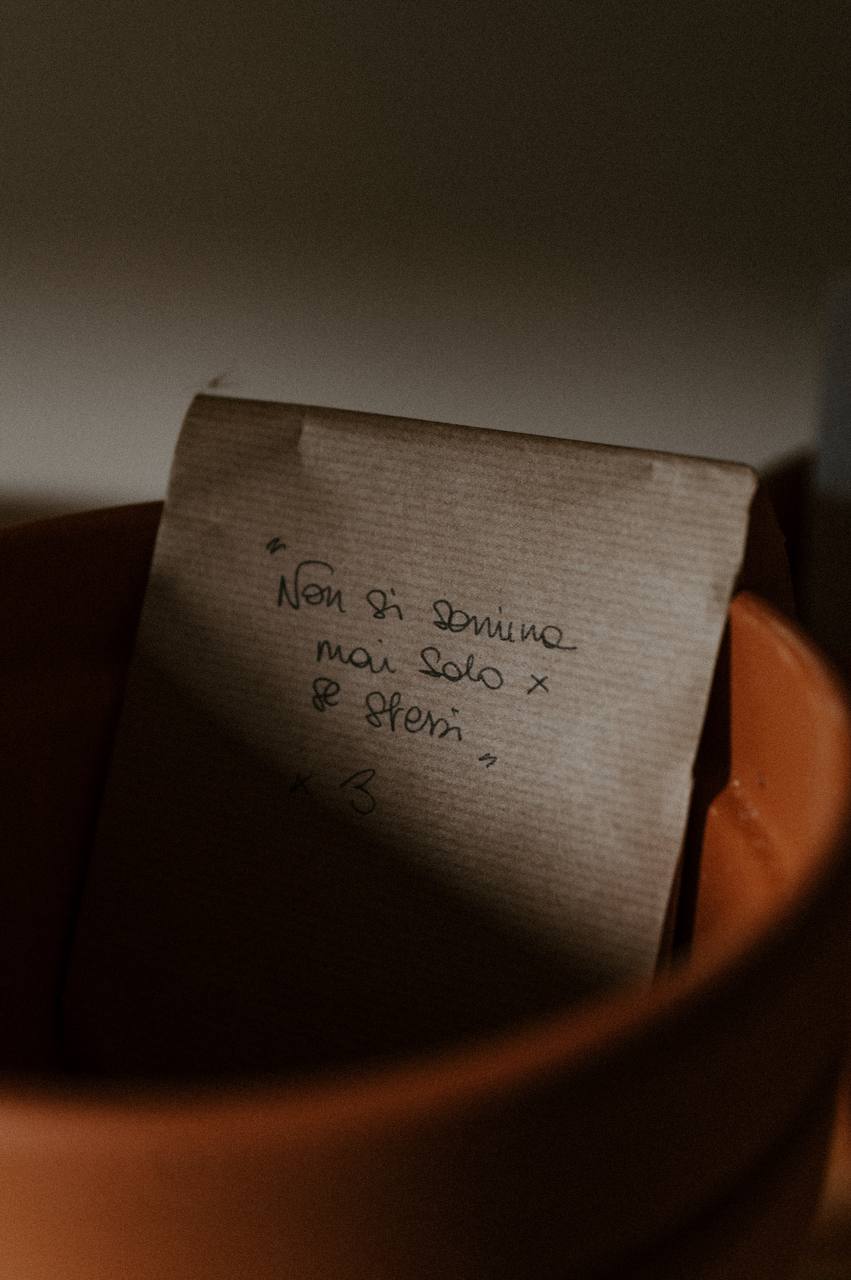 "Non si semina
mai solo x
se stessi"
x 3